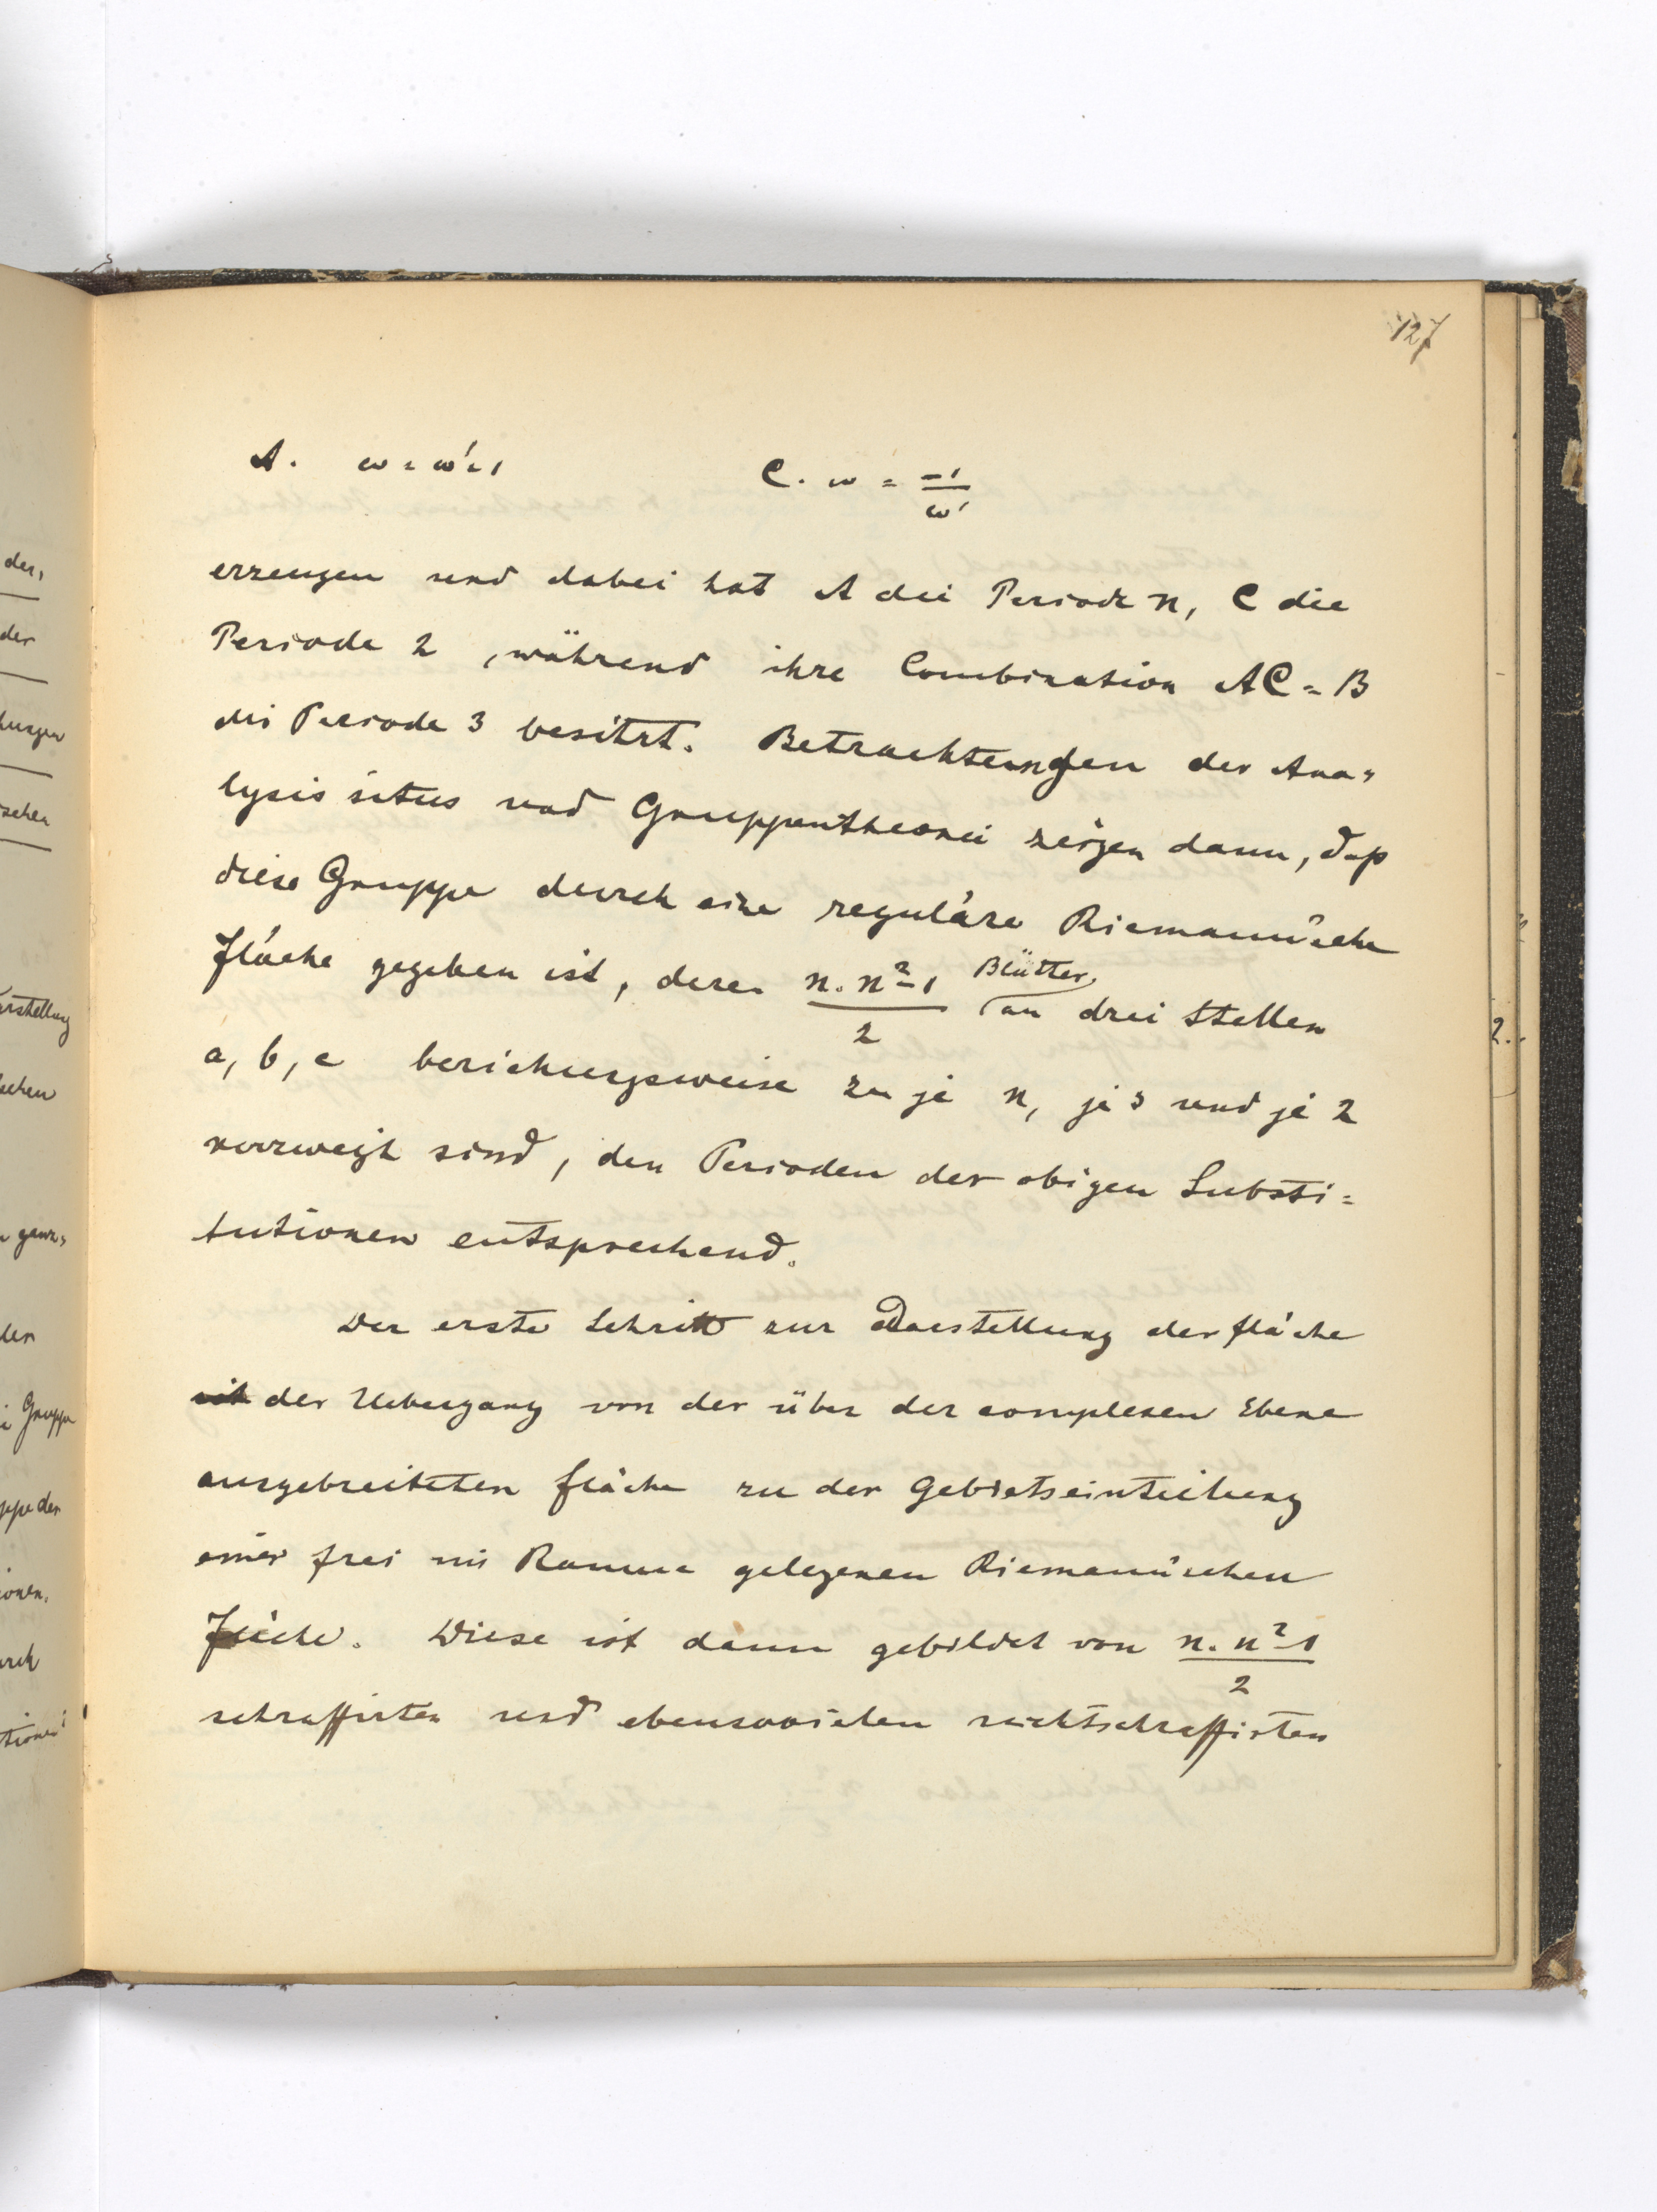 127
A. ω = ω'-1 C. ω = -1/ω'
erzeugen und dabei hat A die Periode n, C die
Periode 2, während ihre Combination AC = B
die Periode 3 besitzt. Betrachtungen der Ana=
lysis situs und Gruppentheorie zeigen dann, daß
diese Gruppe durch eine reguläre Riemann'sche
Fläche gegeben ist, deren n.n²-1/2 Blätter an drei Stellen
a, b, c beziehungsweise zu je n, je 3 und je 2
verzweigt sind, den Perioden der obigen Substi=
tutionen entsprechend.
Der erste Schritt zur Darstellung der Fläche
ist der Uebergang von der über der complexen Ebene
ausgebreiteten Fläche zu der Gebietseinteilung
einer frei im Raume gelegenen Riemann'schen
Fläche. Diese ist dann gebildet von n.n²-1/2
schraffirten und ebensovielen nichtschraffirten
der,
der
schen
erstellung
Gruppe
ppe der
ionen.
2.